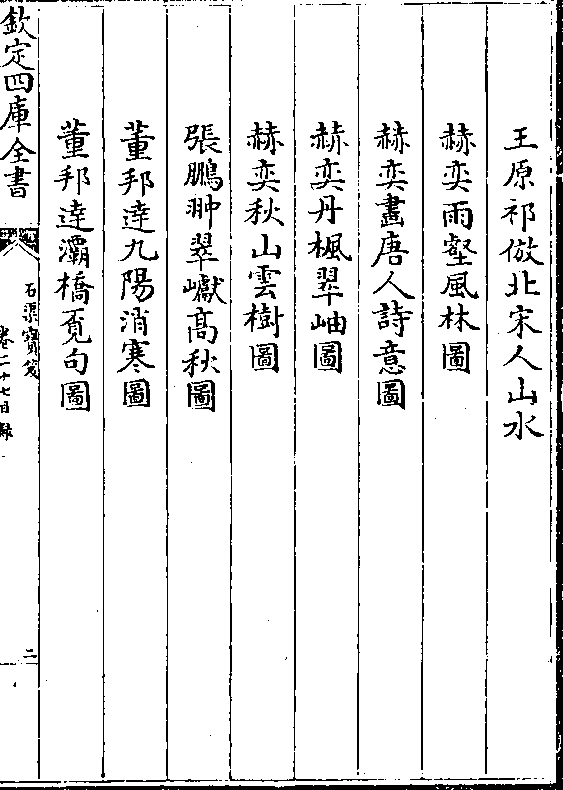 王原祁倣北宋人山水
赫奕雨壑風林圖
赫奕畫唐人詩意圖
赫奕丹楓翠岫圖
赫奕秋山雲樹圖
張鵬翀翠巘髙秋圖
董邦達九陽消寒圖
董邦達灞橋覓句圖
欽定四庫全書
石渠寶笈
卷二十七目録
二